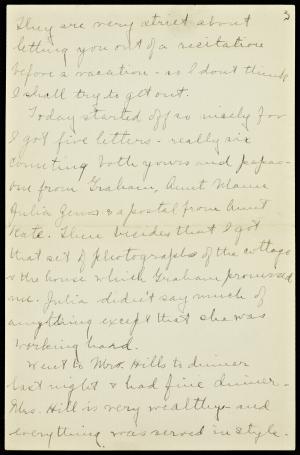 3
They are very strict about
letting you out of a recitation
before a vacation - so I don't think
I shall try to get out.
Today started off so nicely for
I got five letters - really six
counting both yours and papas -
one from Graham, Aunt Mame
Julia & a postal from Aunt
Kate. Then besides that I got
that set of photographs of the cottage
& the house which Graham promised
me. Julia didn't say much of
anything except that she was
working hard.
Went to Mrs. Hills to dinner
last night & had fine dinner -
Mrs. Hill is very wealthy - and
everything was served in style.